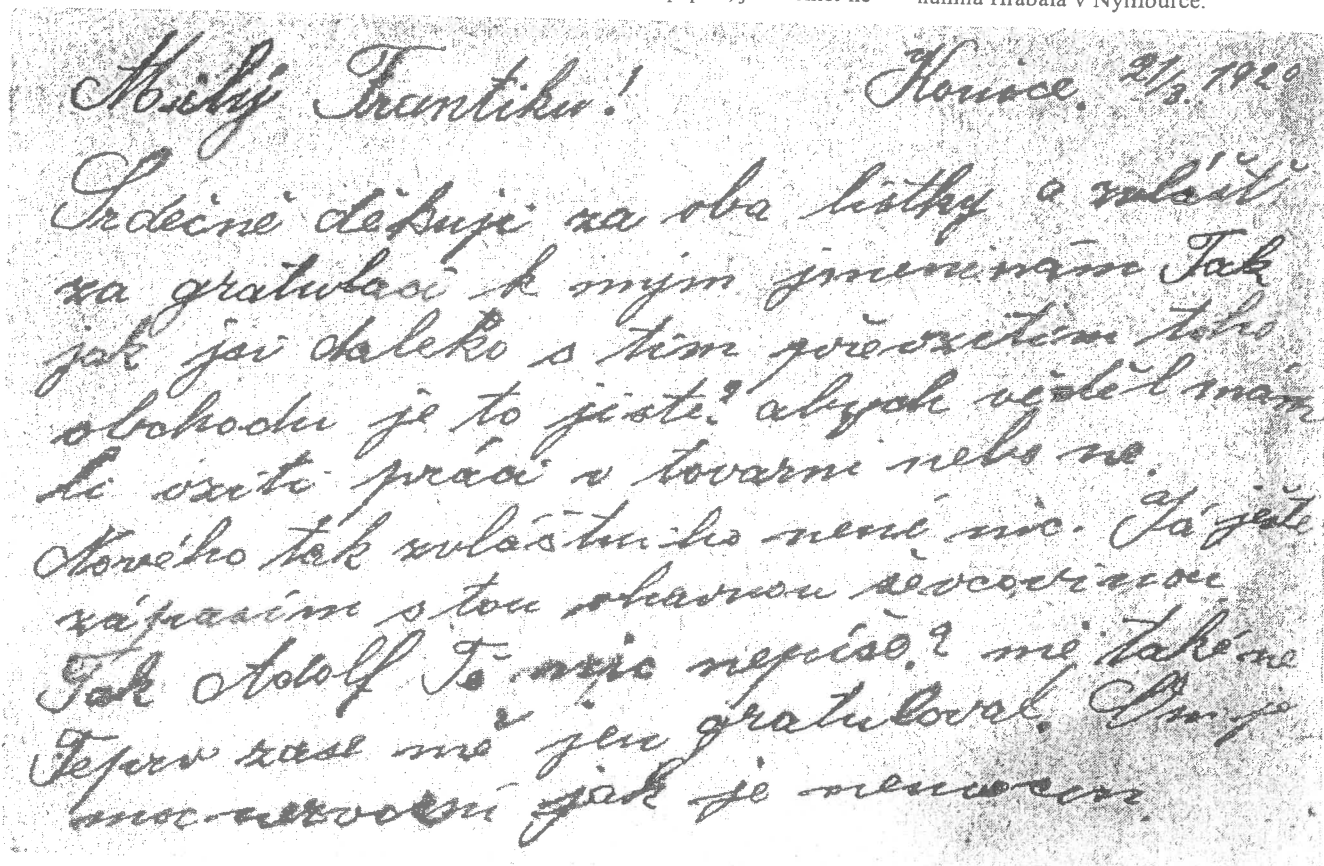 humila Hrabala v Nymburce.
Milý Frantíku! Konice. 21/3. 1920
Srdečně děkuji za oba lístky a zvlášť
za gratulaci k mým jmeninám Tak
jak jsi daleko s tím převzetím toho
obchodu je to jisté? abych věděl mám
li vzíti práci v tovarni nebo ne.
Nového tak zvláštního není nic. Já ještě
zápasím s tou ohavnou ševcovinou
Tak Adolf Tě nic nepíše? mě také ne
Teprv zase mě jen gratuloval. On je
nervosní jak je nemocen